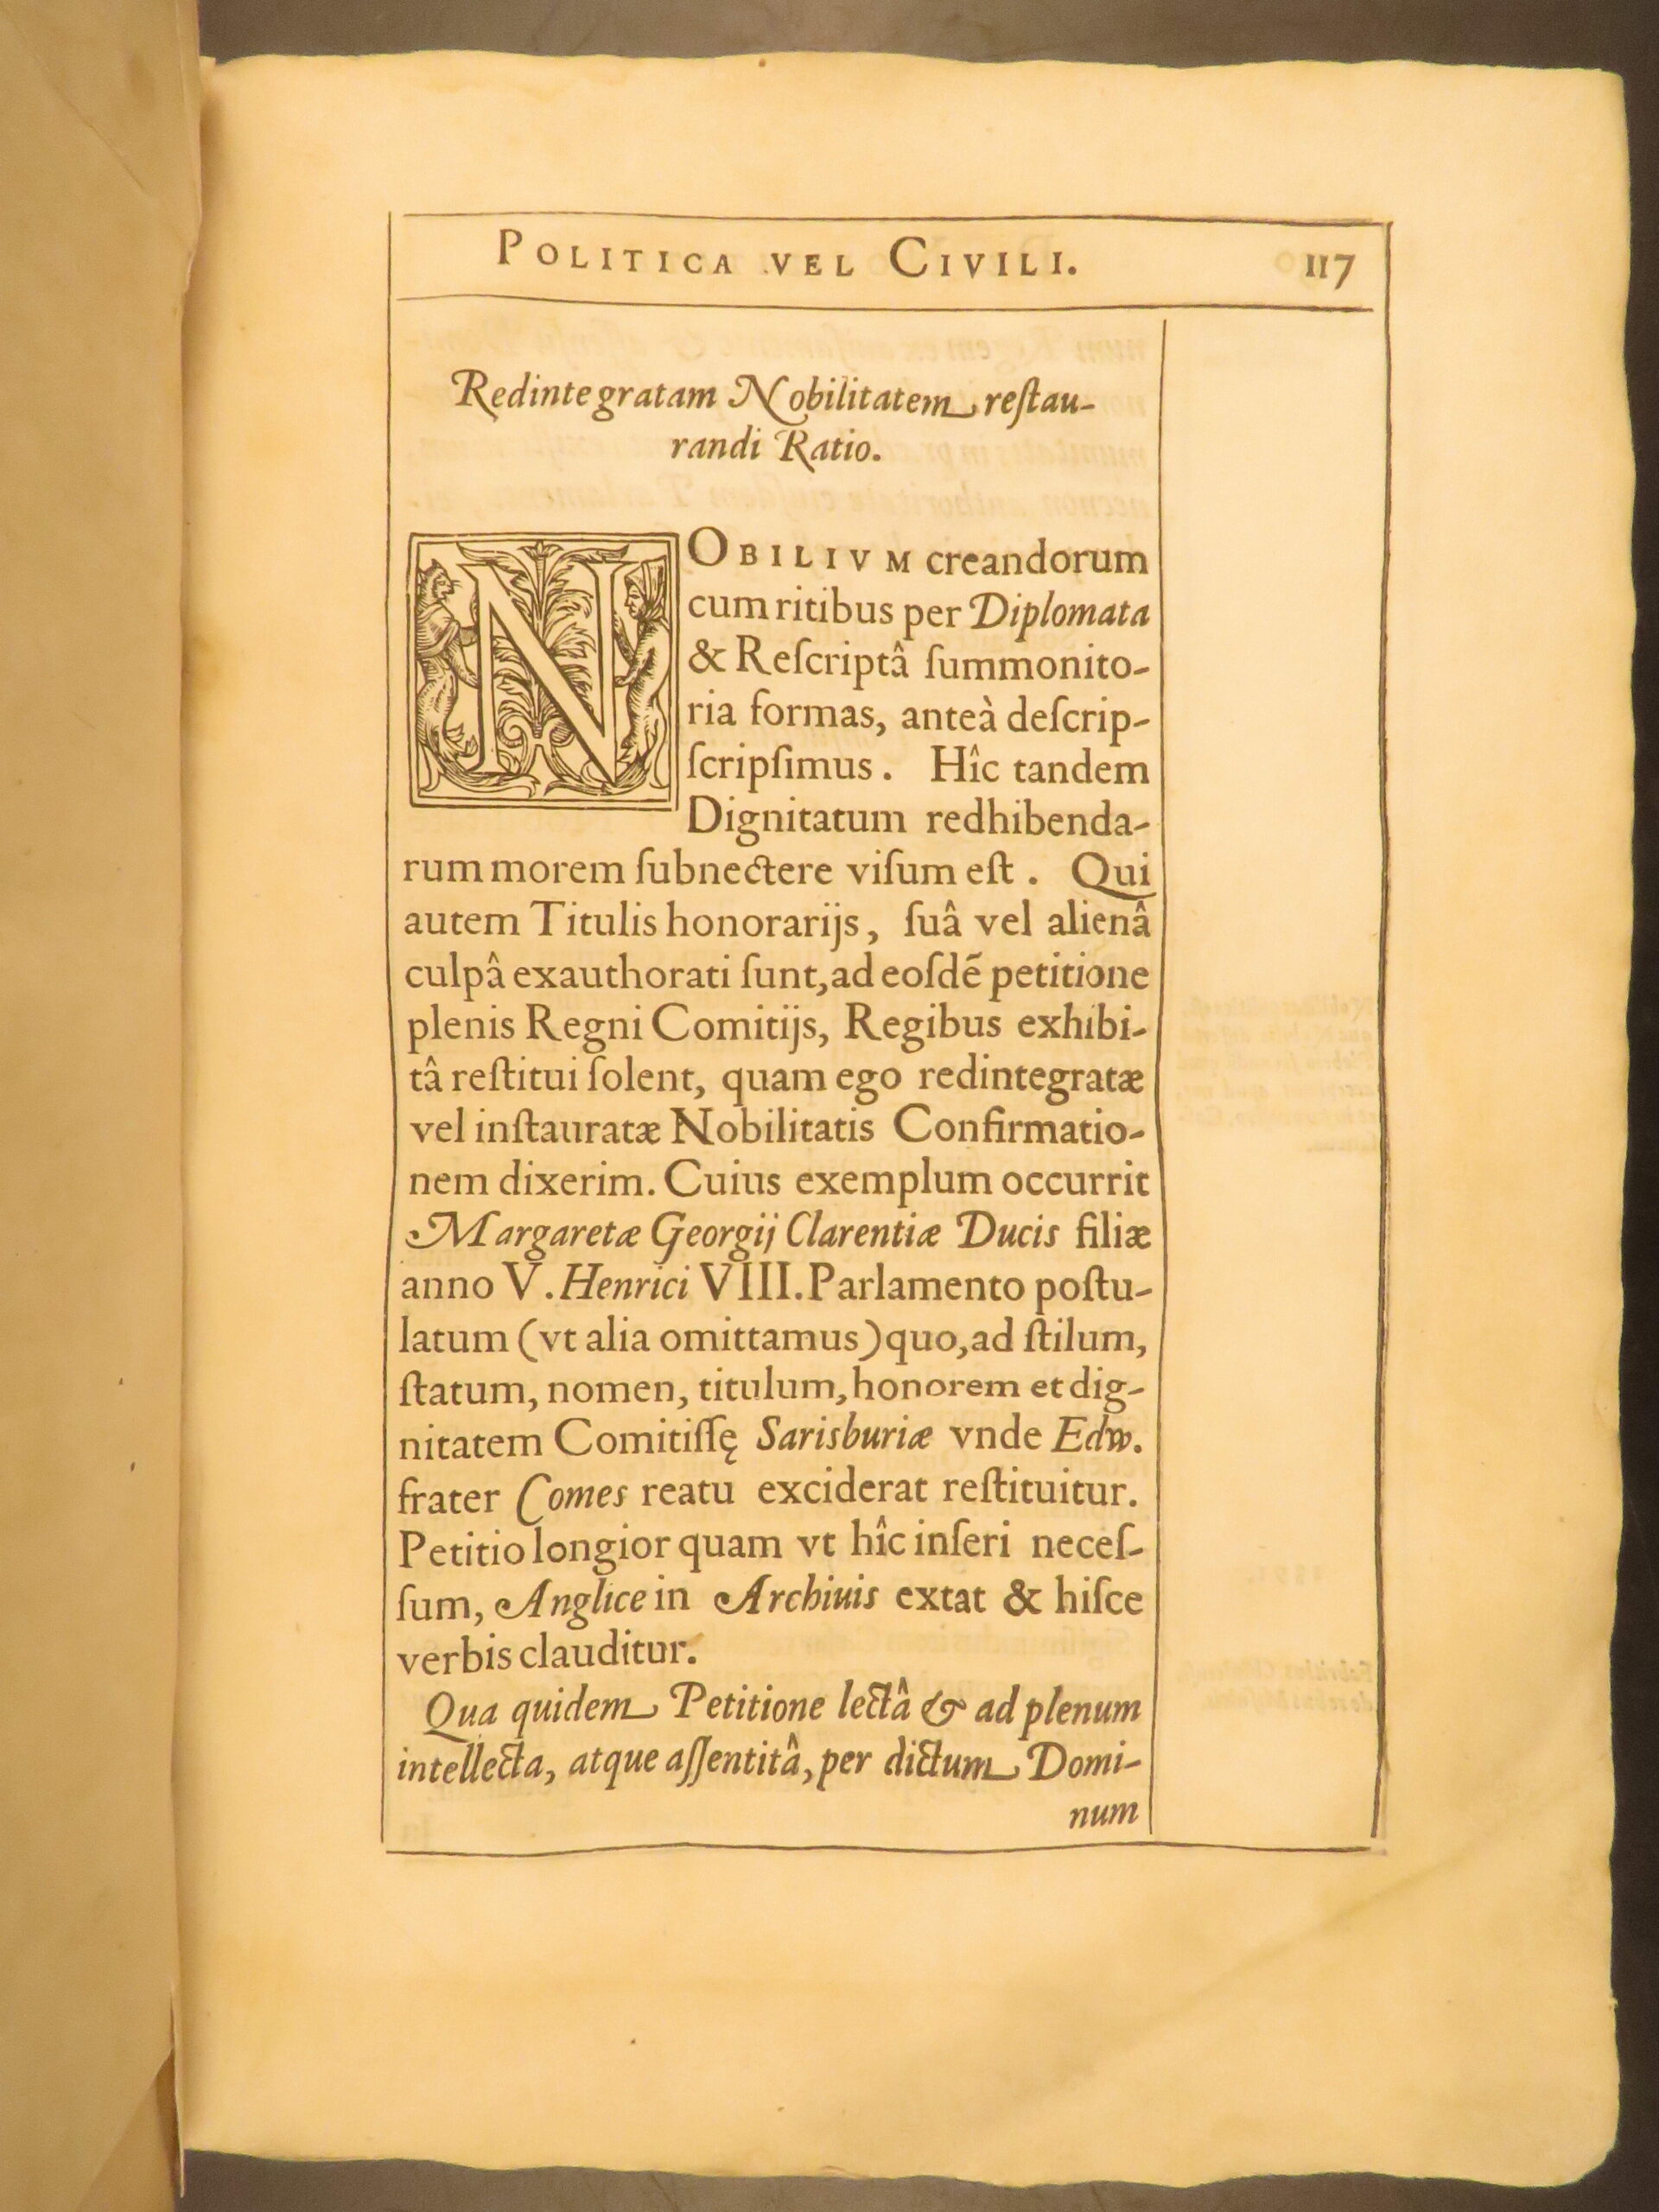 POLITICA VEL CIVILI. 117
Redintegratam Nobilitatem reſtau-
randi Ratio.
NOBILIVM creandorum
cum ritibus per Diplomata
& Reſcriptâ ſummonito-
ria formas, anteà deſcrip-
ſcripſimus. Hîc tandem
Dignitatum redhibenda-
rum morem ſubnectere viſum eſt. Qui
autem Titulis honorarijs, ſuâ vel alienâ
culpâ exauthorati ſunt, ad eoſdē petitione
plenis Regni Comitijs, Regibus exhibi-
tâ reſtitui ſolent, quam ego redintegratæ
vel inſtauratæ Nobilitatis Confirmatio-
nem dixerim. Cuius exemplum occurrit
Margaretæ Georgij Clarentiæ Ducis filiæ
anno V. Henrici VIII. Parlamento poſtu-
latum (vt alia omittamus) quo, ad ſtilum,
ſtatum, nomen, titulum, honorem et dig-
nitatem Comitiſſę Sarisburiæ vnde Edw.
frater Comes reatu exciderat reſtituitur.
Petitio longior quam vt hîc inſeri neceſ-
ſum, Anglice in Archiuis extat & hiſce
verbis clauditur.
Qua quidem Petitione lectâ & ad plenum
intellecta, atque aſſentitâ, per dictum Domi-
num